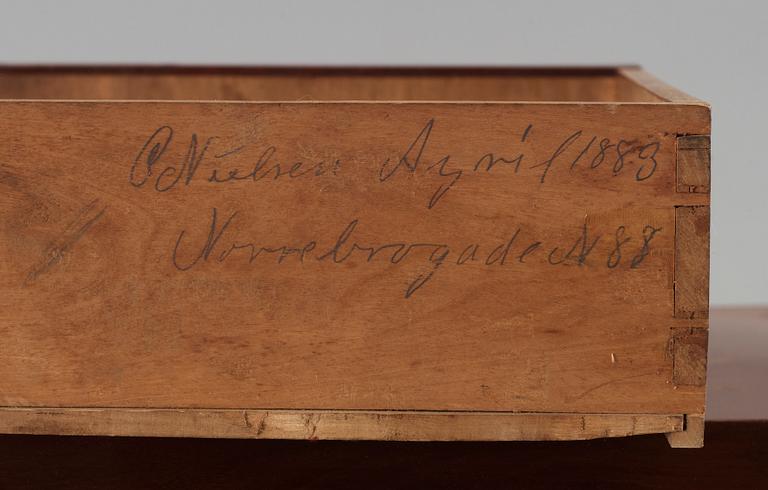 C Nielsen April 1883
Norrebrogade N 88